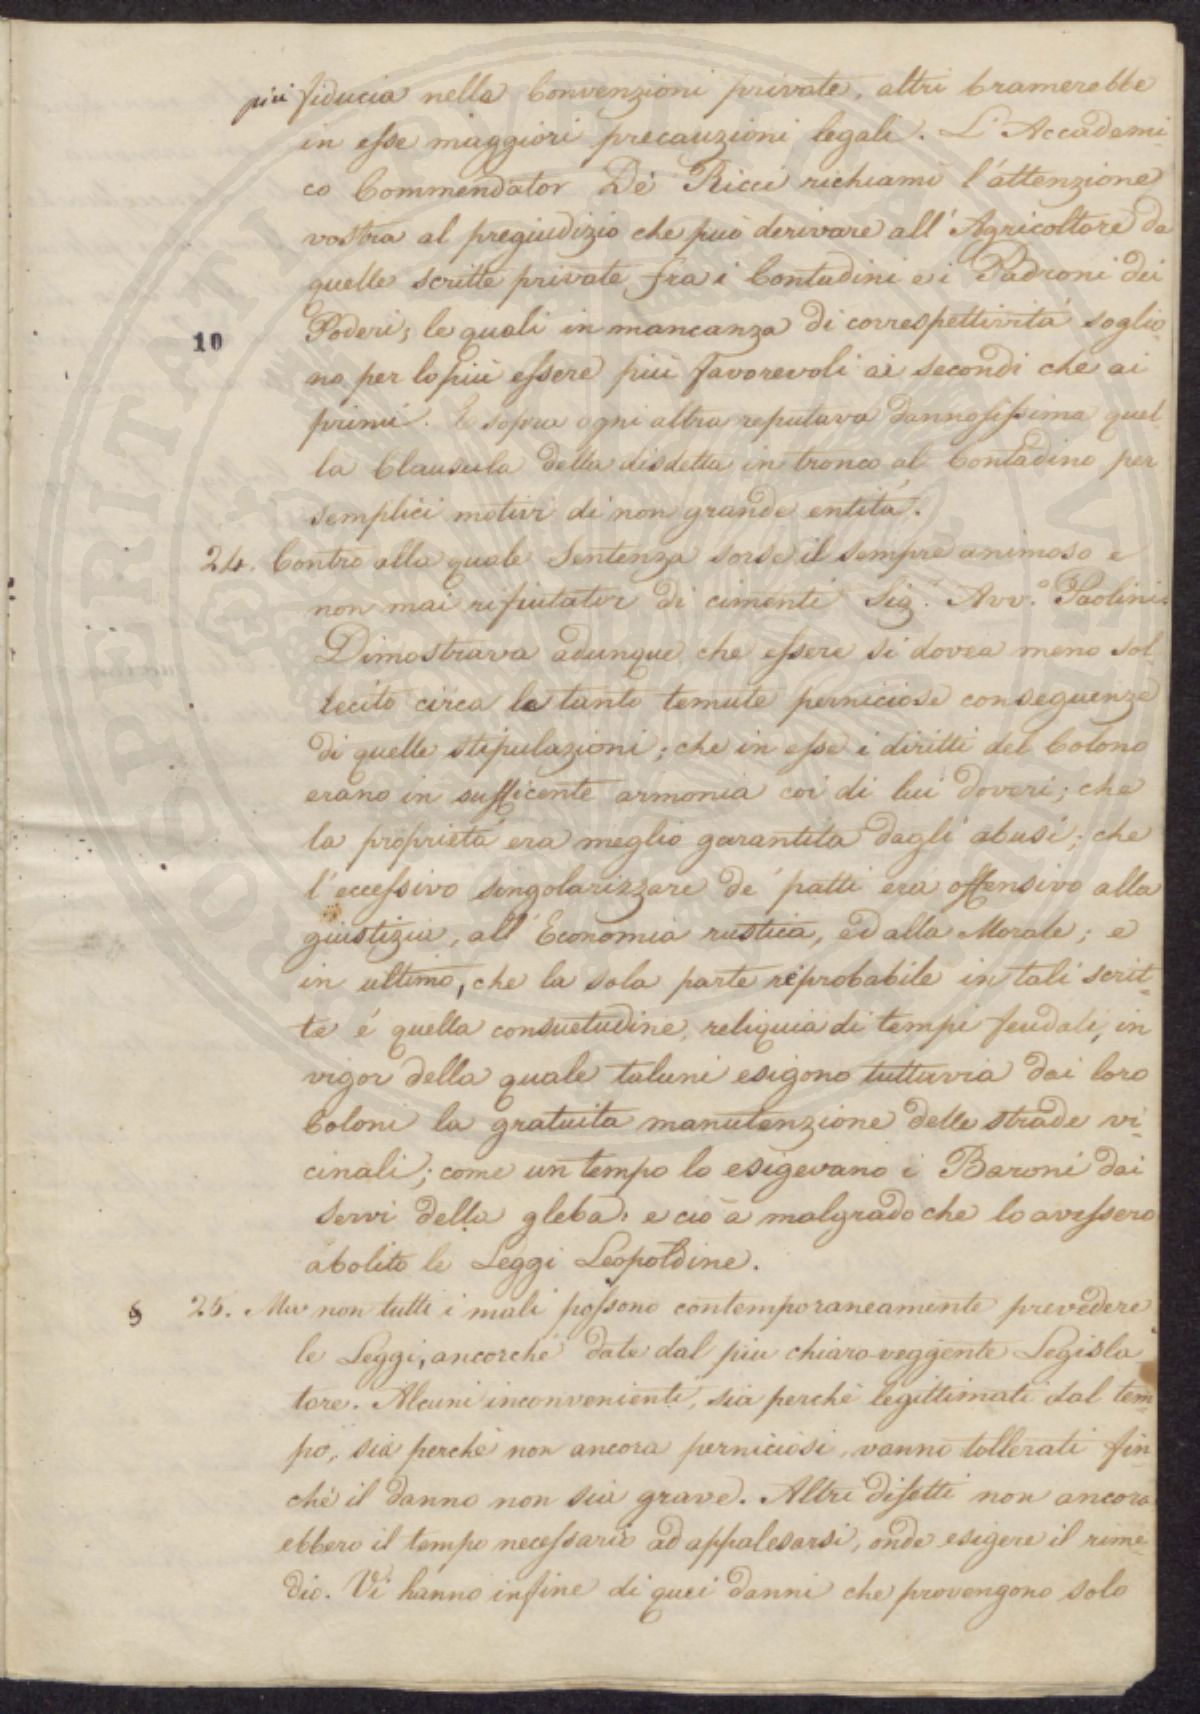 più fiducia nella Convenzioni private, altri bramerebbe
in esse maggiori precauzioni legali. L'Accademi-
co Commendator De' Ricci richiamò l'attenzione
vostra al pregiudizio che può derivare all'Agricoltore da
quelle scritte private fra i Contadini e i Padroni dei
10
Poderi; le quali in mancanza di correspettività soglio-
no per lo più essere più favorevoli ai secondi che ai
primi. E sopra ogni altra reputava dannosissima quel-
la Clausula della disdetta in tronco al Contadino per
semplici motivi di non grande entità.
24. Contro alla quale Sentenza sorse il sempre animoso e
non mai rifiutator di cimenti Sig.r Avv.o Paolini.
Dimostrava adunque che essere si dovea meno sol-
lecito circa le tanto temute perniciose conseguenze
di quelle stipulazioni; che in esse i diritti del Colono
erano in sufficente armonia coi di lui doveri; che
la proprietà era meglio garantita dagli abusi; che
l'eccessivo singolarizzare de' patti era offensivo alla
giustizia, all'Economia rustica, ed alla Morale; e
in ultimo, che la sola parte reprobabile in tali scrit-
te é quella consuetudine, reliquia di tempi feudali, in
vigor della quale taluni esigono tuttavia dai loro
Coloni la gratuita manutenzione delle strade vi-
cinali; come un tempo lo esigevano i Baroni dai
servi della gleba: e ciò a malgrado che lo avessero
abolito le Leggi Leopoldine.
§ 25. Ma non tutti i mali possono contemporaneamente prevedere
le Leggi, ancorché date dal più chiaro-veggente Legisla
tore. Alcuni inconvenienti, sia perché legittimati dal tem-
po, sia perché non ancora perniciosi, vanno tollerati fin-
ché il danno non sia grave. Altri difetti non ancora
ebbero il tempo necessario ad appalesarsi, onde esigere il rime-
dio. Vi hanno infine di quei danni che provengono solo
PROSPERITATI PUBLICAE